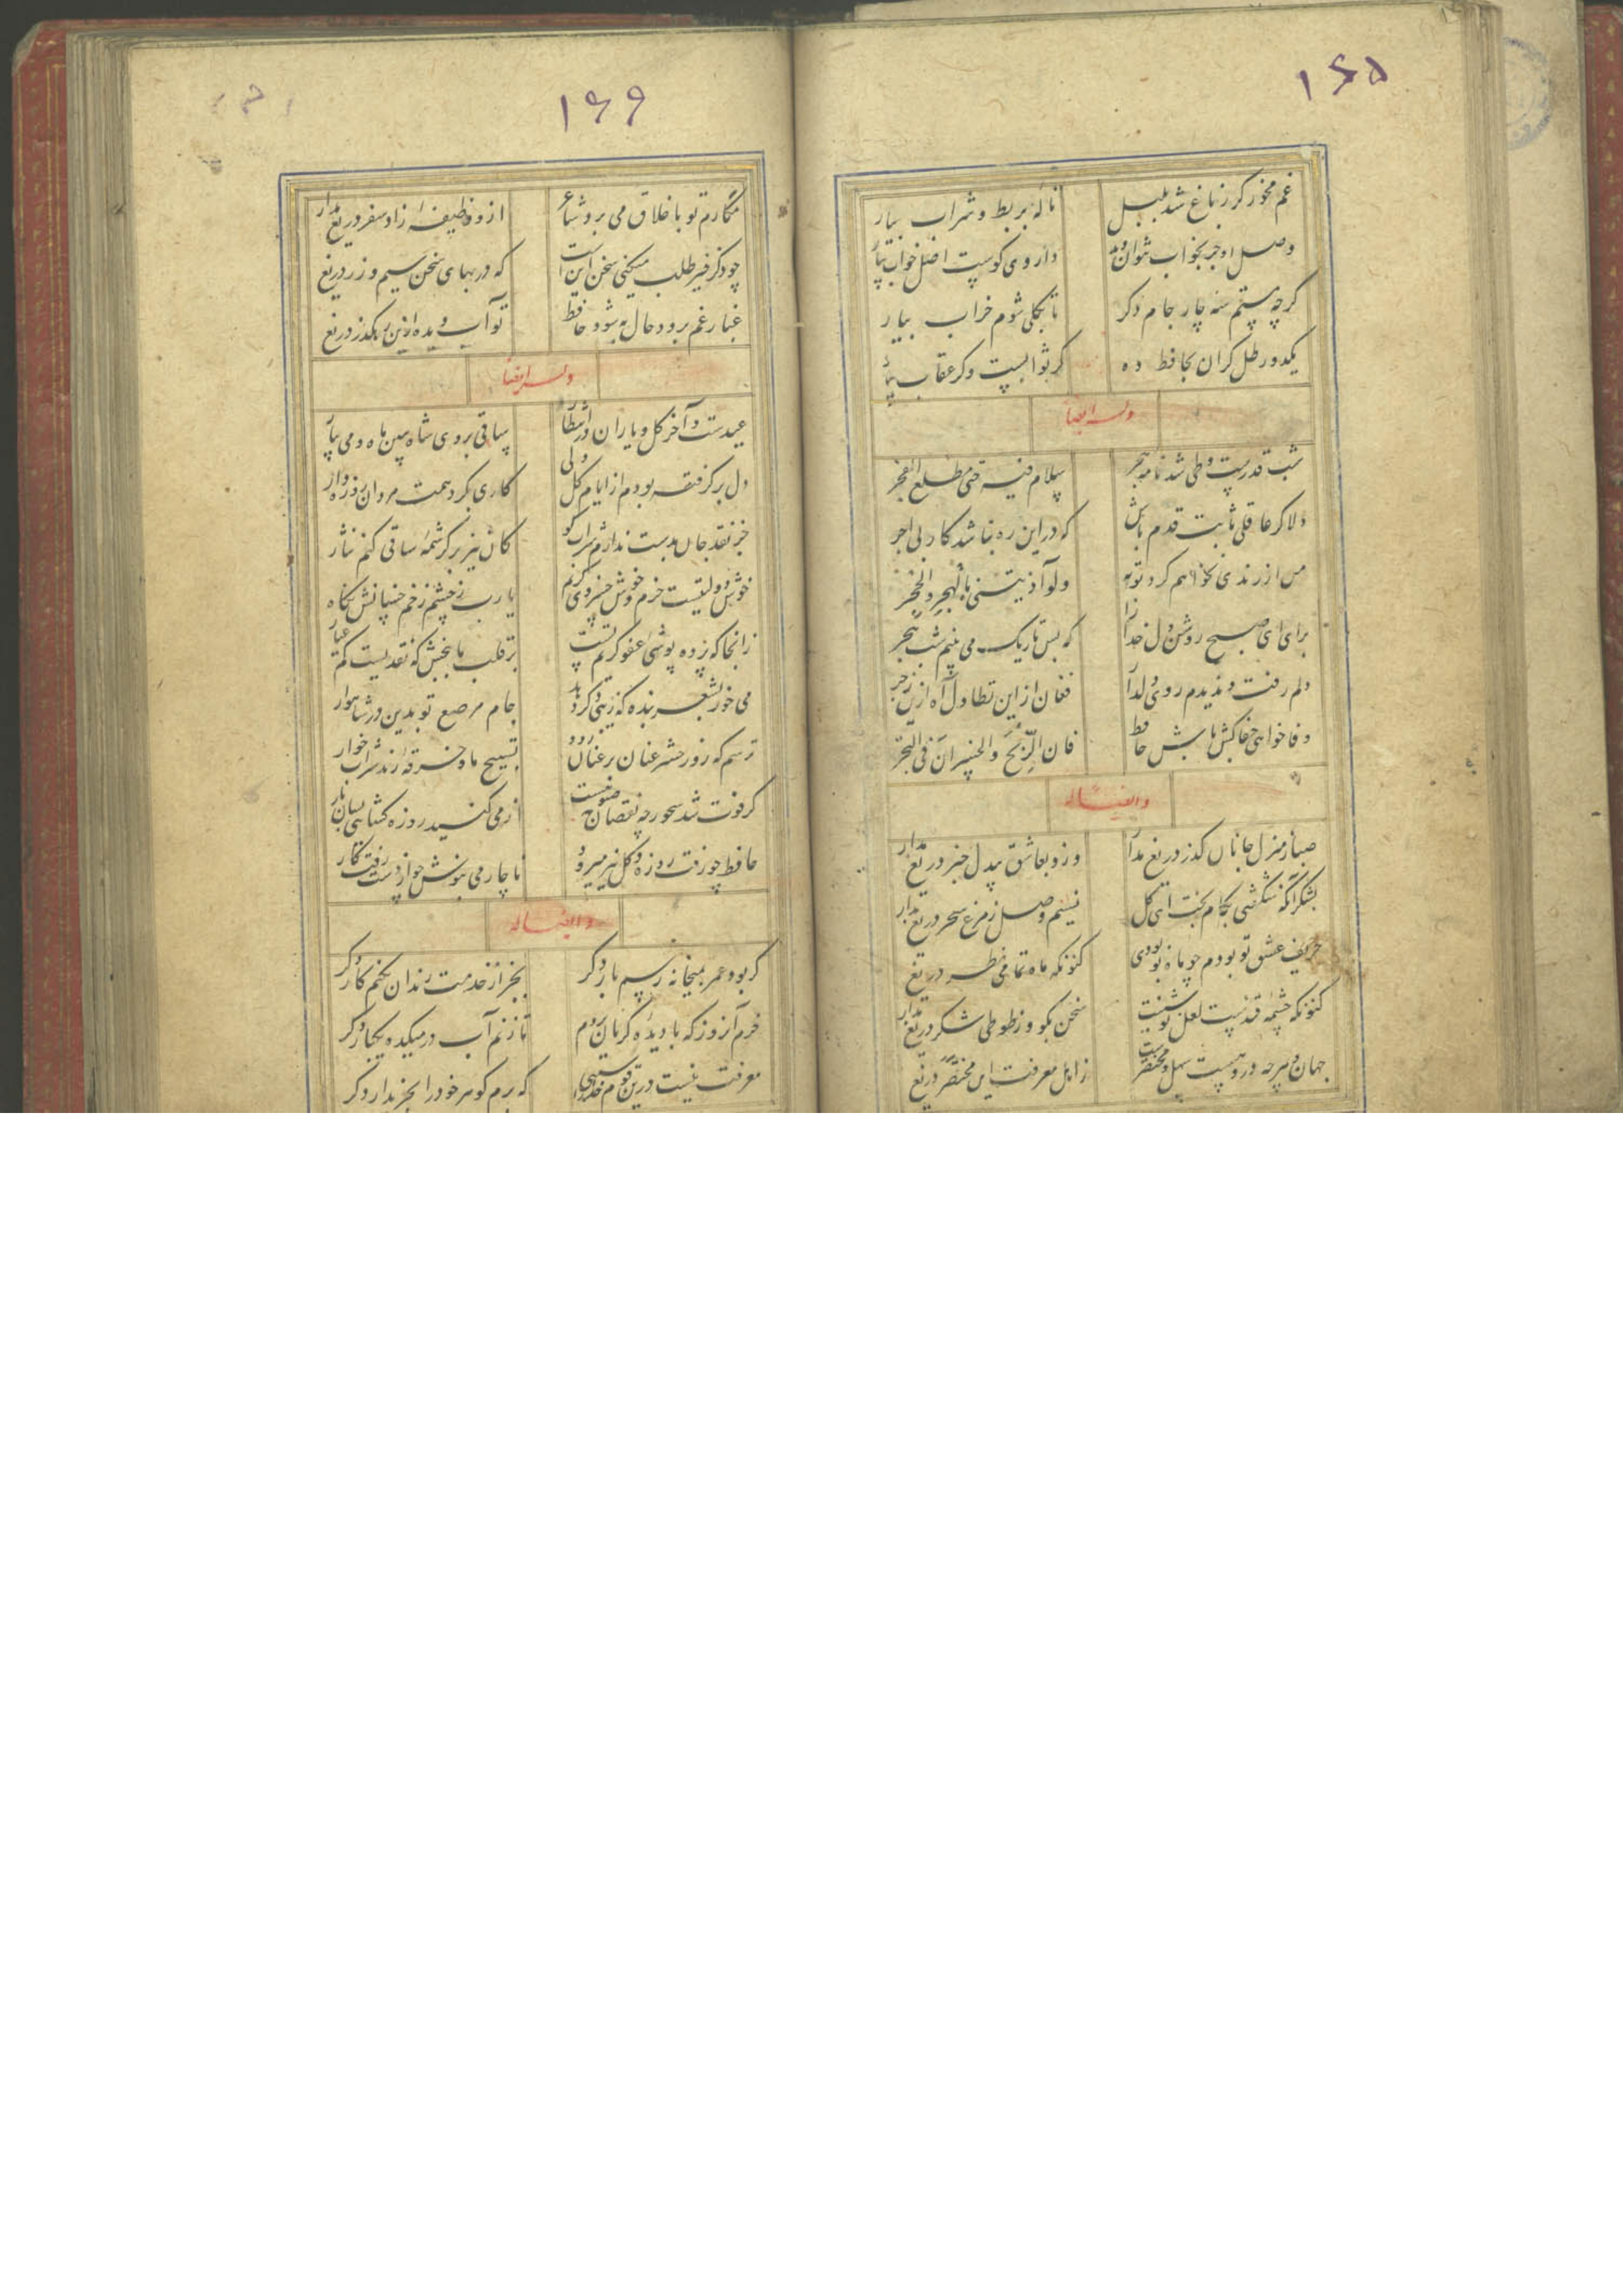 ۱۶۵
غم مخور گر ز باغ شد بلبل نالهٔ بربط و شراب بیار
وصل او جز بخواب نتوان دید داروی کوست اصل خواب بیار
گرچه مستم سه چار جام دگر تا بکلی شوم خراب بیار
یکدو رطل گران بحافظ ده گر ثوابست وگر عقاب بیار
وله ایضا
شب قدرست و طی شد نامه هجر سلام فیه حتی مطلع الفجر
دلا گر عاقلی ثابت قدم باش که در این ره نباشد کار بی اجر
من از رندی نخواهم کرد توبه ولو آذیتنی بالهجر والحجر
برای ای صبح روشن دل خدا را که بس تاریک می بینم شب هجر
دلم رفت و ندیدم روی دلدار فغان از این تطاول آه ازین زجر
وفا خواهی جفاکش باش حافظ فان الربح والخسران فی التجر
وایضا له
صبا ز منزل جانان گذر دریغ مدار وزو بعاشق بیدل خبر دریغ مدار
بشکر آنکه شکفتی بکام بخت ای گل نسیم وصل ز مرغ سحر دریغ مدار
حریف عشق تو بودم چو ماه نو بودی کنونکه ماه تمامی نظر دریغ
کنونکه چشمه قندست لعل نوشینت سخن بگو و ز طوطی شکر دریغ مدار
جهان و هرچه درو هست سهل و مختصرست ز اهل معرفت این مختصر دریغ
۱۶۶
مکارم تو بآفاق می برد شاعر ازو وظیفهٔ زاد سفر دریغ مدار
چو ذکر خیر طلب میکنی سخن اینست که در بهای سخن سیم و زر دریغ
غبار غم برود حال به شود حافظ تو آب دیده ازین رهگذر دریغ
وله ایضا
عیدست و آخر گل و یاران در انتظار ساقی بروی شاه ببین ماه و می بیار
دل برگرفته بودم از ایام گل ولی کاری بکرد همت مردان روزه دار
جز نقد جان بدست ندارم شراب کو کان نیز بر کرشمهٔ ساقی کنم نثار
خوش دولتیست خرم و خوش خسروی کریم یا رب ز چشم زخم خسانش نگاه
زانجا که پرده پوشی عفو کریم تست بر قلب ما ببخش که نقدیست کم عیار
می خور بشعر بنده که زیبی دگر دهد جام مرصع تو بدین در شاهوار
ترسم که روز حشر عنان بر عنان رود تسبیح ما و خرقه رند شرابخوار
گر فوت شد سحور چه نقصان صبوحست از می کنید روزه گشائی بسان یار
حافظ چو رفت روزه و گل نیز میرود ناچار می بنوش چو از دست رفت کار
وایضا له
گر بود عمر بمیخانه رسم بار دگر بجز از خدمت رندان نکنم کار دگر
خرم آنروز که با دیده گریان بروم تا زنم آب در میکده یکبار دگر
معرفت نیست درین قوم خدایا سببی که برم گوهر خود را بخریدار دگر